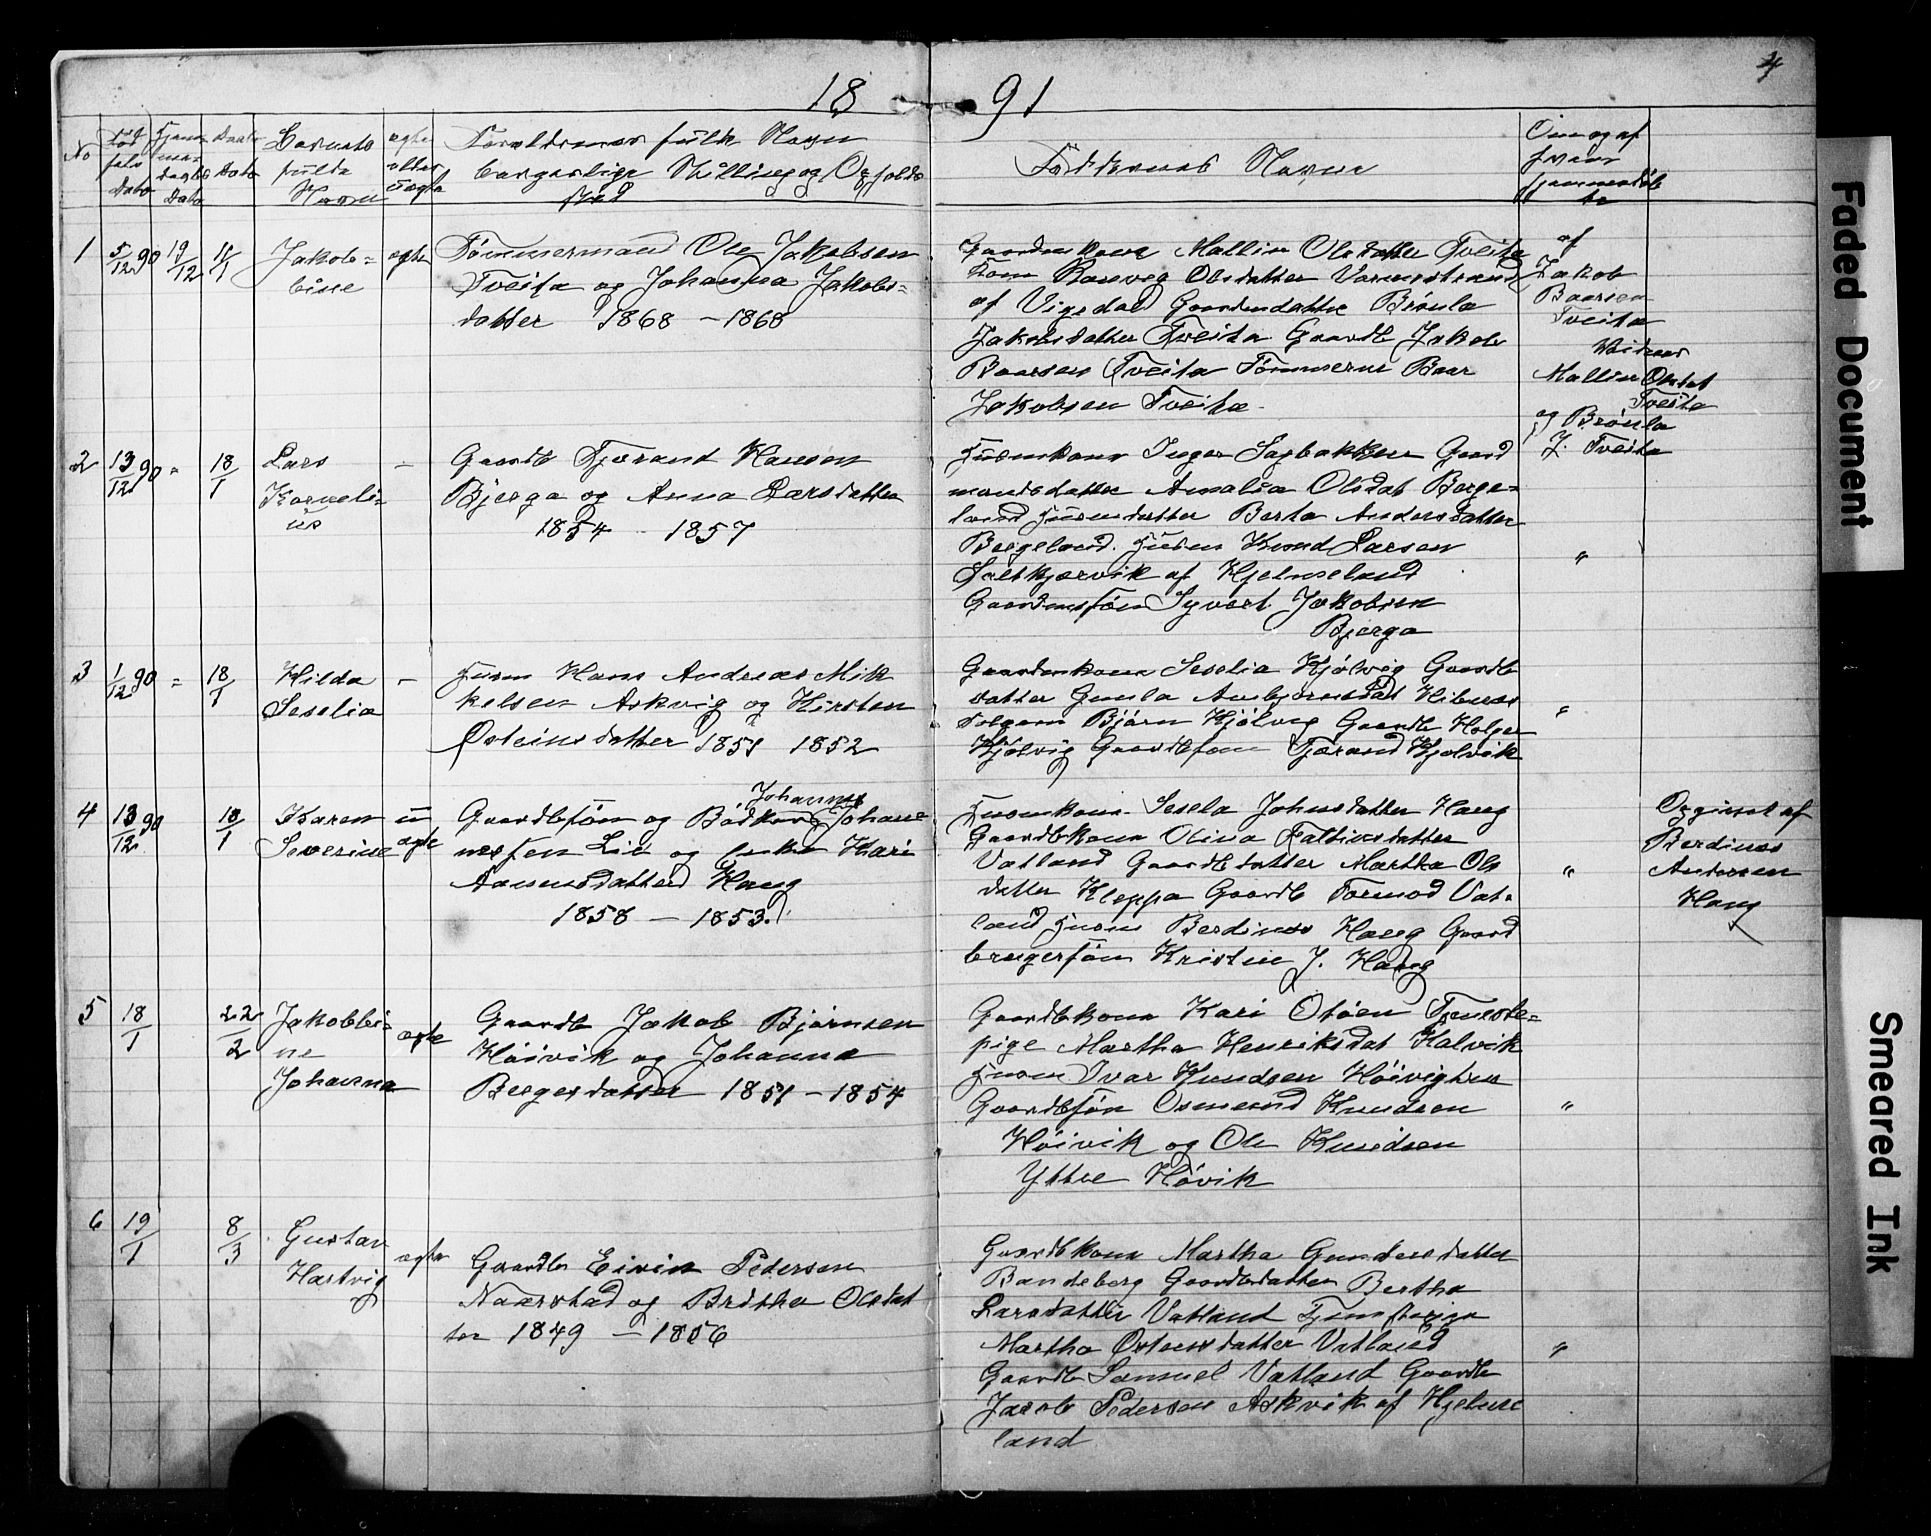 1891
4
No
Fødsels Dato
Hjemmedaabs Dato
Daabs Dato
Barnets fulde Navn
ægte eller uægte
Forældrenes fulde Navn
borgerlige Stilling og Opholds
sted
Faddernes Navne
Om og af
hvem
hjemmedøb
te
1 5/12 90 19/12 11/1 Jakob=
bine
ægte
Tømmermand Ole Jakobsen
Tveita og Johanna Jakobs=
datter 1868 - 1868
Gaardmkone Mallin Olsdatter Tveita
Kone Ranveg Olsdatter Vormestrand
af Vigedal Gaardmdatter Brønla
Jakobsdatter Tveita Gaardb Jakob
Baarsen Tveita Tømmerm Baar
Jakobsen Tveita
af
Jakob
Baarsen
Tveita
Vidner
Mallin Olsdat
Tveita
og Brønla
J. Tveita
2 13/12 90 " 18/1 Lars
Korneli=
us
-
Gaardb Tjerand Hansen
Bjerga og Anna Larsdatter
1854 - 1857
Husmkone Inger Sagbakken Gaard
mandsdatter Amalia Olsdat Berge=
land Husmdatter Berta Andersdatter
Bergeland. Husm Knud Larsen
Saltkjærvik af Hjelmeland
Gaardmssøn Syvert Jakobsen
Bjerga
"
3 1/12 90 " 18/1 Hilda
Seselia
-
Husm Hans Andreas Mik
kelsen Askvig og Kirsten
Østeinsdatter 1851 1852
Gaardmkone Seselia Kjølvig Gaardb
datter Gunla Anbjørnsdat
Bjørn Kjølvig Gaardb Holger
Kjølvig Gaardbsøn Tjærand Kjølvik
"
4 13/12 90 18/1 Karen
Severine
u
ægte
Johannes
Gaardbsøn og Bødker Johann
nessen Lie og Enke Kari
Aamundsdatter Haug
1858 - 1853.
Husmkone Sesela Johnsdatter Haug
Gaardbkone Olina Faltinsdatter
Vatland Gaardbdatter Martha Ols
datter Kleppa Gaardb Tormod Vat=
land Husm Berdines Haug Gaard
brugersøn Kristen J. Haug
"
Opgivet af
Berdines
Andersen
Haug
5 18/1 22/2 Jakobbi=
ne
Johanna
ægte
Gaardb Jakob Bjørnsen
Høivik og Johanna
Bergesdatter 1851 - 1854
Gaardbkone Kari Otøen Tjeneste=
pige Martha Henriksdat Halvik
Husm Ivar Knudsen Høivighen
Gaardbsøn Osmund Knudsen
Høivik og Ole Knudsen
Yttre Høvik
"
6 19/1 8/3 Gustav
Hartvig
ægte
Gaardb Eivin Pedersen
Naarstad og Britha Olsdat
ter 1849 - 1856
Gaardbkone Martha Gundersdatter
Bandeberg Gaardbdatter Bertha
Larsdatter Vatland Tjenstepige
Martha Østensdatter Vatland
Gaardb Samuel Vatland Gaardb
Jacob Pedersen Askvik af Hjelme
land
"
Faded Document
Smeared Ink